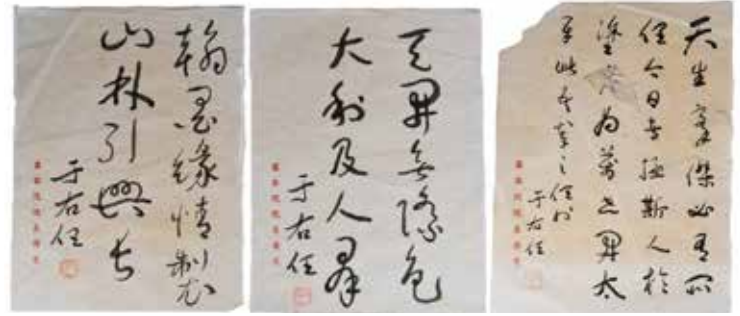 翰墨緣情製
山林引興長
于右任
天開無際色
大利及人羣
于右任
天生豪傑必有所
任今日者拯斯人於
塗炭為萬世開太
平此吾輩之任也
于右任